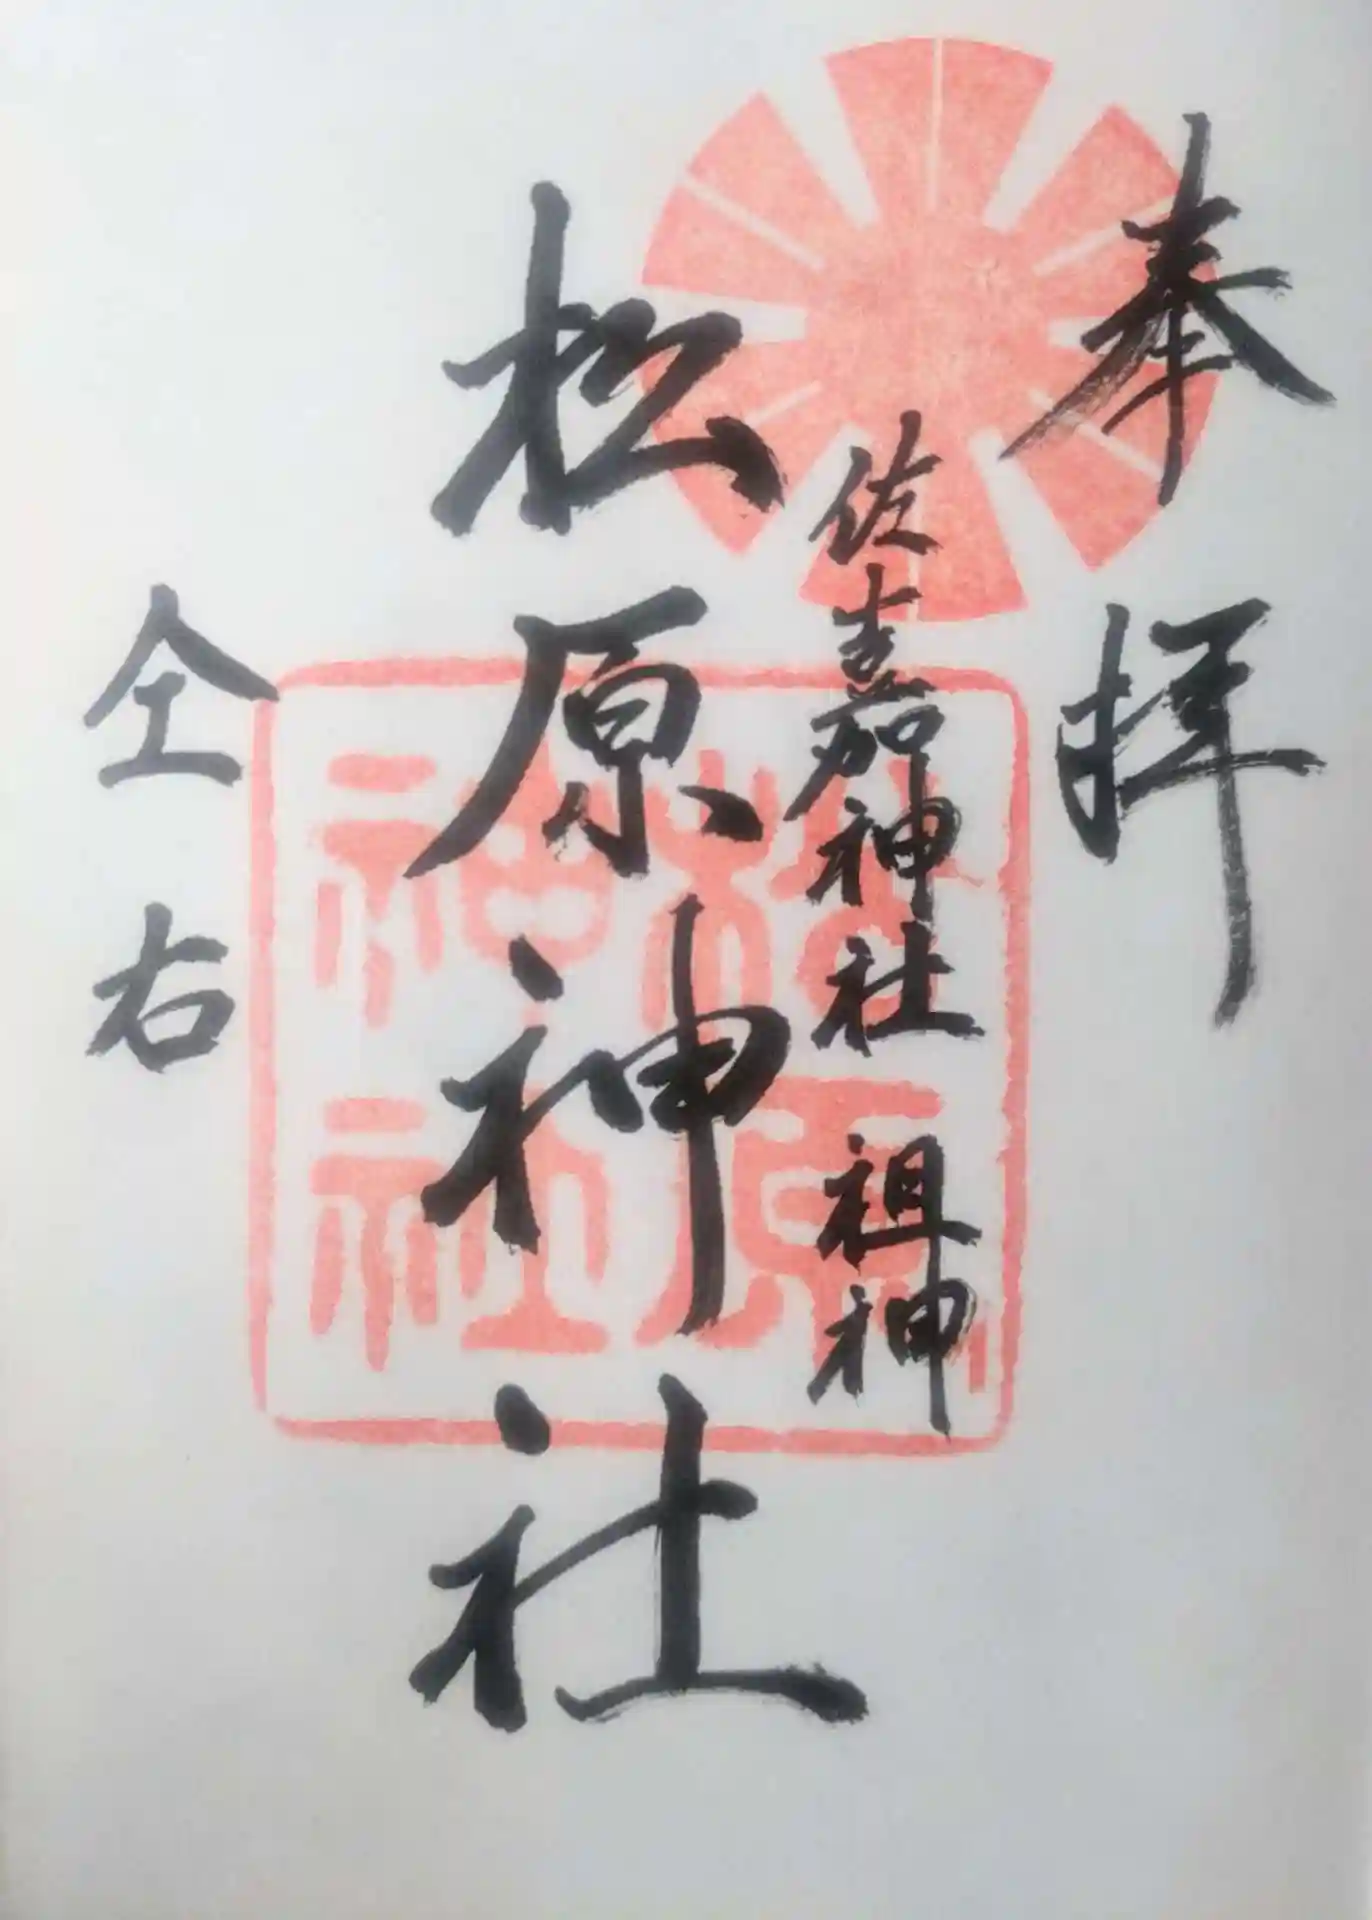 奉拝
佐嘉神社 祖神
松原神社
仝右
松原神社